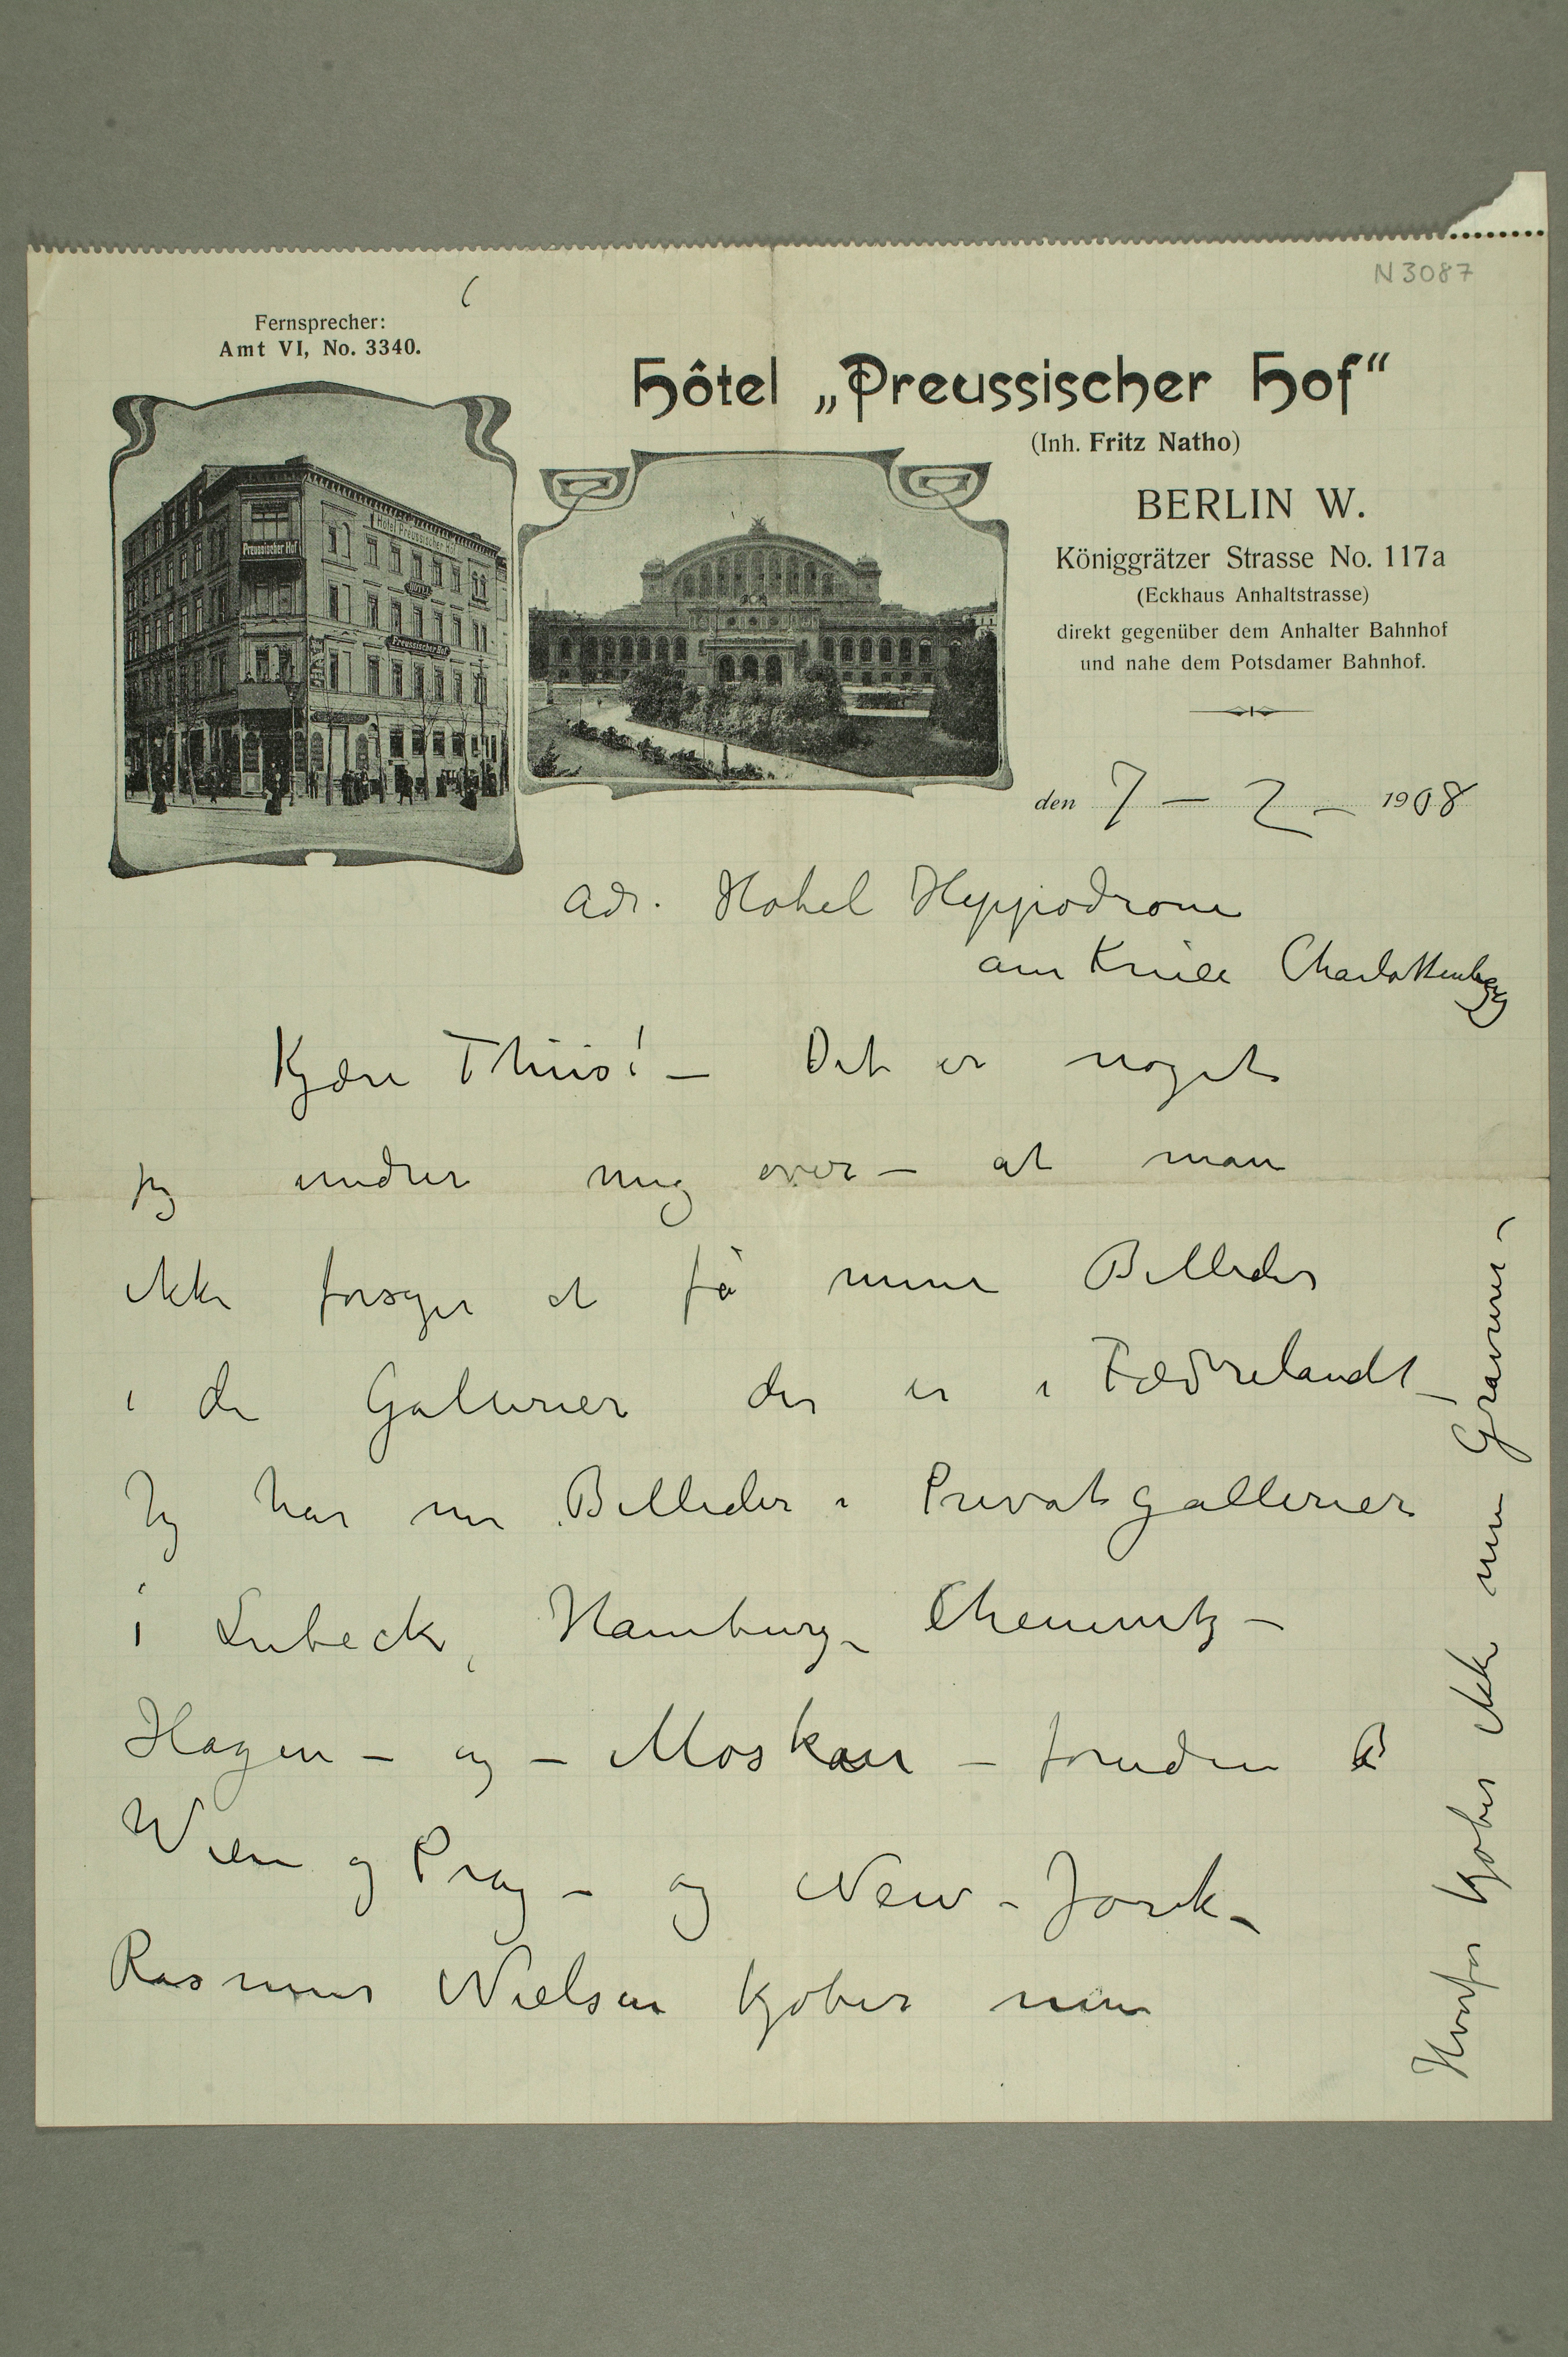 N 3087
Fernsprecher:
Amt VI, No. 3340.
Hôtel „Preussischer Hof“
(Inh. Fritz Natho)
BERLIN W.
Königgrätzer Strasse No. 117a
(Eckhaus Anhaltstrasse)
direkt gegenüber dem Anhalter Bahnhof
und nahe dem Potsdamer Bahnhof.
Hôtel Preussischer Hof
Preussischer Hof
HÔTEL
Preussischer Hof
den 7 – 2 – 1908
Adr. Hotel Hippodrom
am Kniee Charlottenburg
Kjære Thiis! – Det er noget
jeg undrer mig over – at man
ikke forsøger at få mine Billeder
i de Gallerier der er i Fædrelandet –
Jeg har nu Billeder i Privatgallerier
i Lubeck, Hamburg – Chemnitz –
Hagen – og – Moskau – foruden
Wien og Prag – og New-Jork –
Rasmus Nielsen kjøber mine
Hvorfor kjøber ikke man Graveurer –